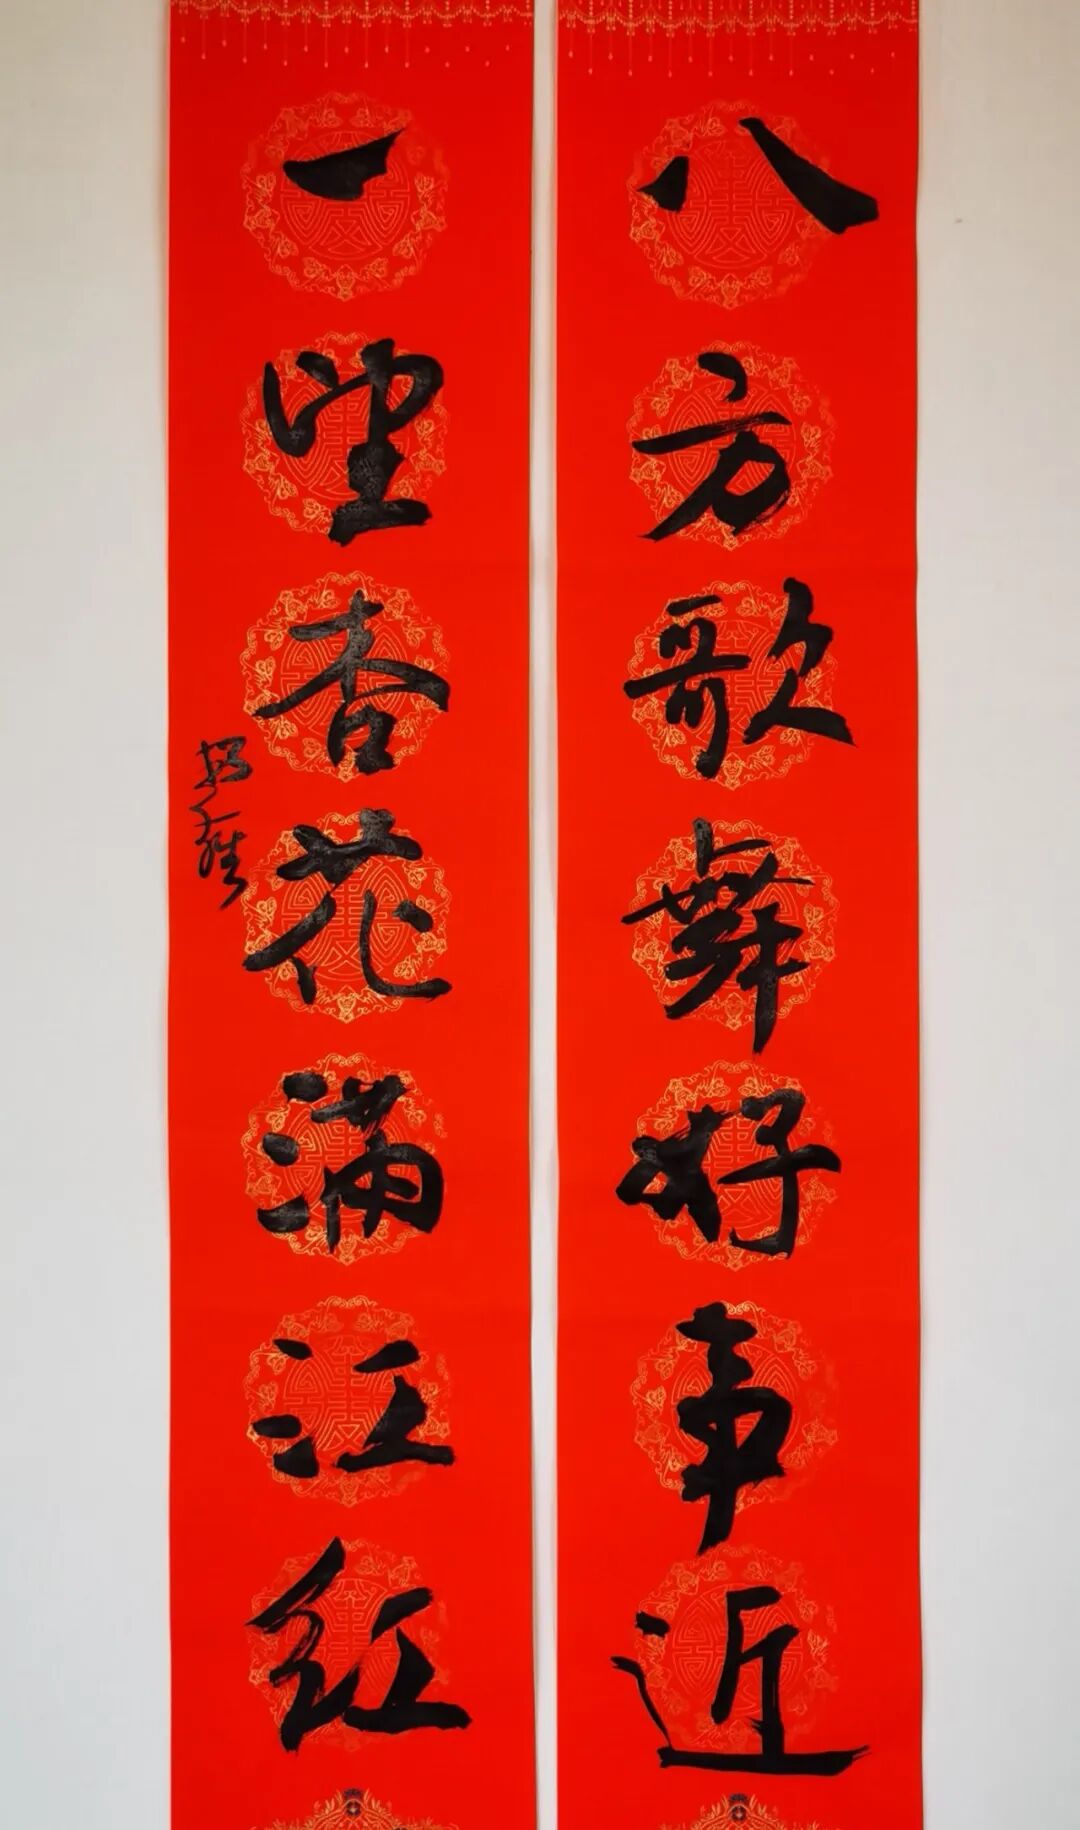 八方歌舞好事近
一望杏花满江红